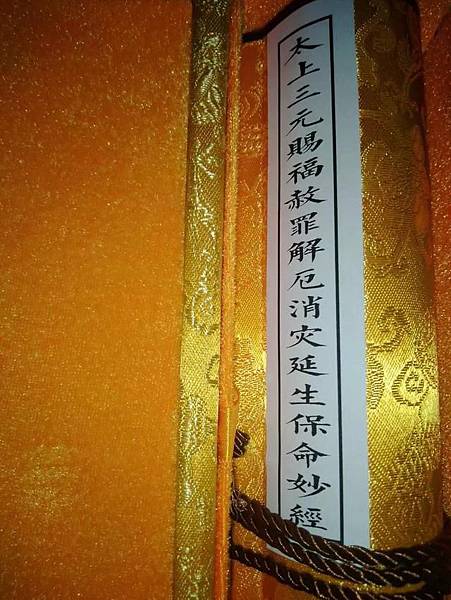 太上三元賜福赦罪解厄消灾延生保命妙經